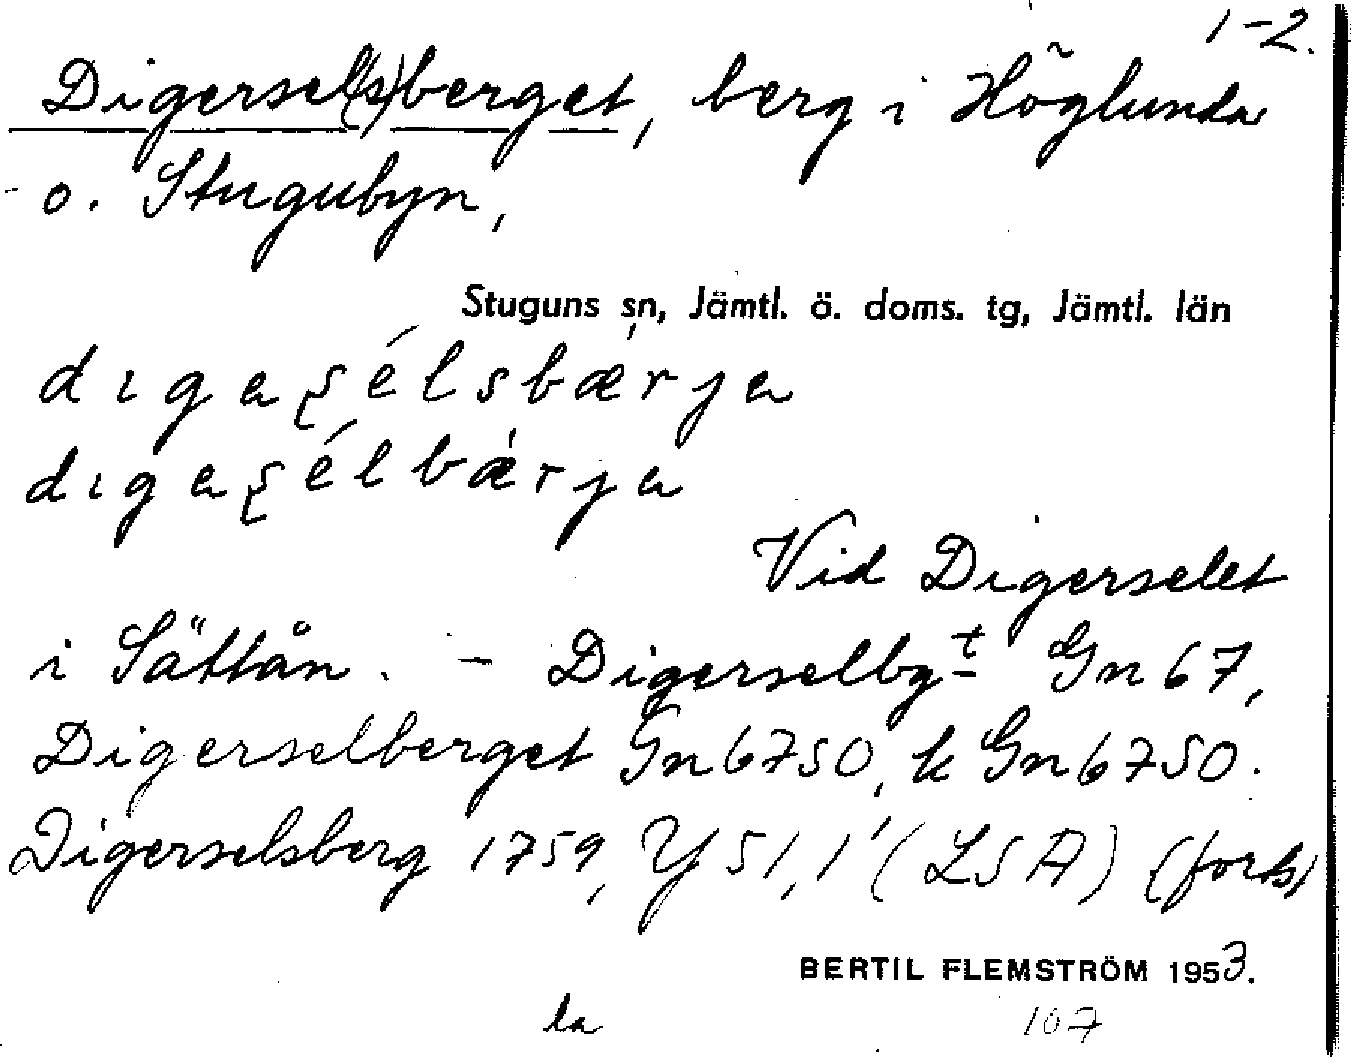 1-2.
Digersel(s)berget, berg i Höglunda
o. Stugubyn,
Stuguns sn, Jämtl. ö. doms. tg, Jämtl. län
dıgaʂélsbærja
dıgaʂélbærja
Vid Digerselet
i Sättån. - Digerselbgt Gn 67,
Digerselberget Gn 6750, k Gn 6750.
Digerselsberg 1759, Y 51, 1 (LSA) (forts)
BERTIL FLEMSTRÖM 1953.
la 107